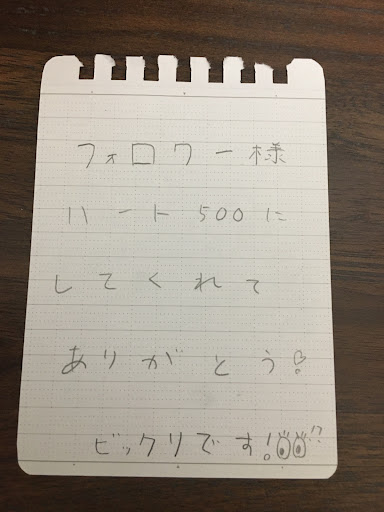 フォロワー様
ハート500に
してくれて
ありがとう!
ビックリです!!?